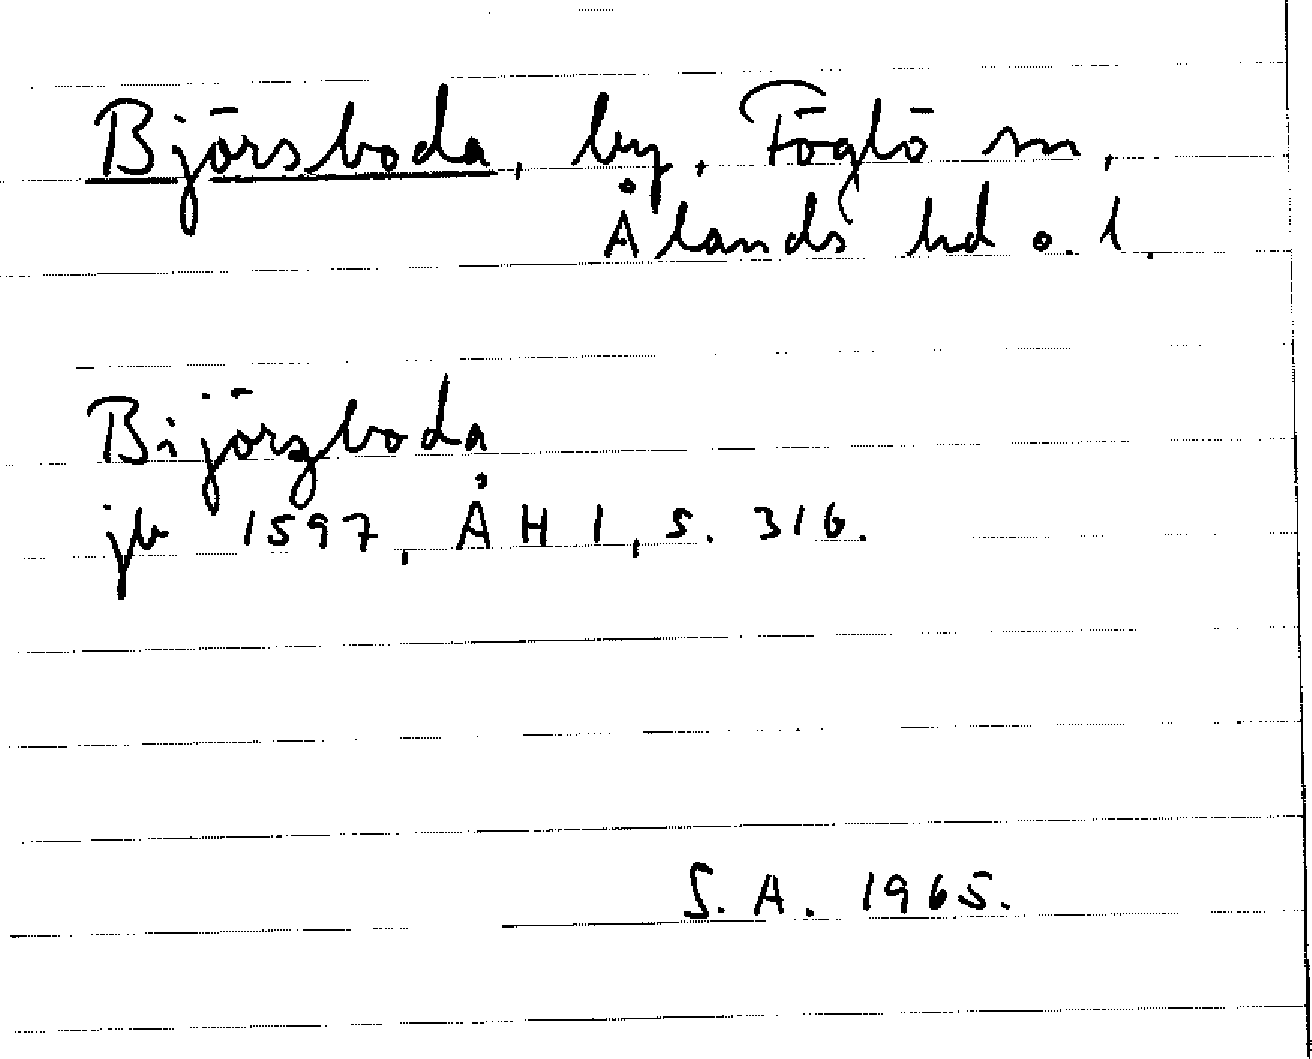 Björsboda, by, Föglö sn,
Ålands hd o. l.
Bijörzboda
jb 1597, ÅH I, s. 316.
S.A. 1965.